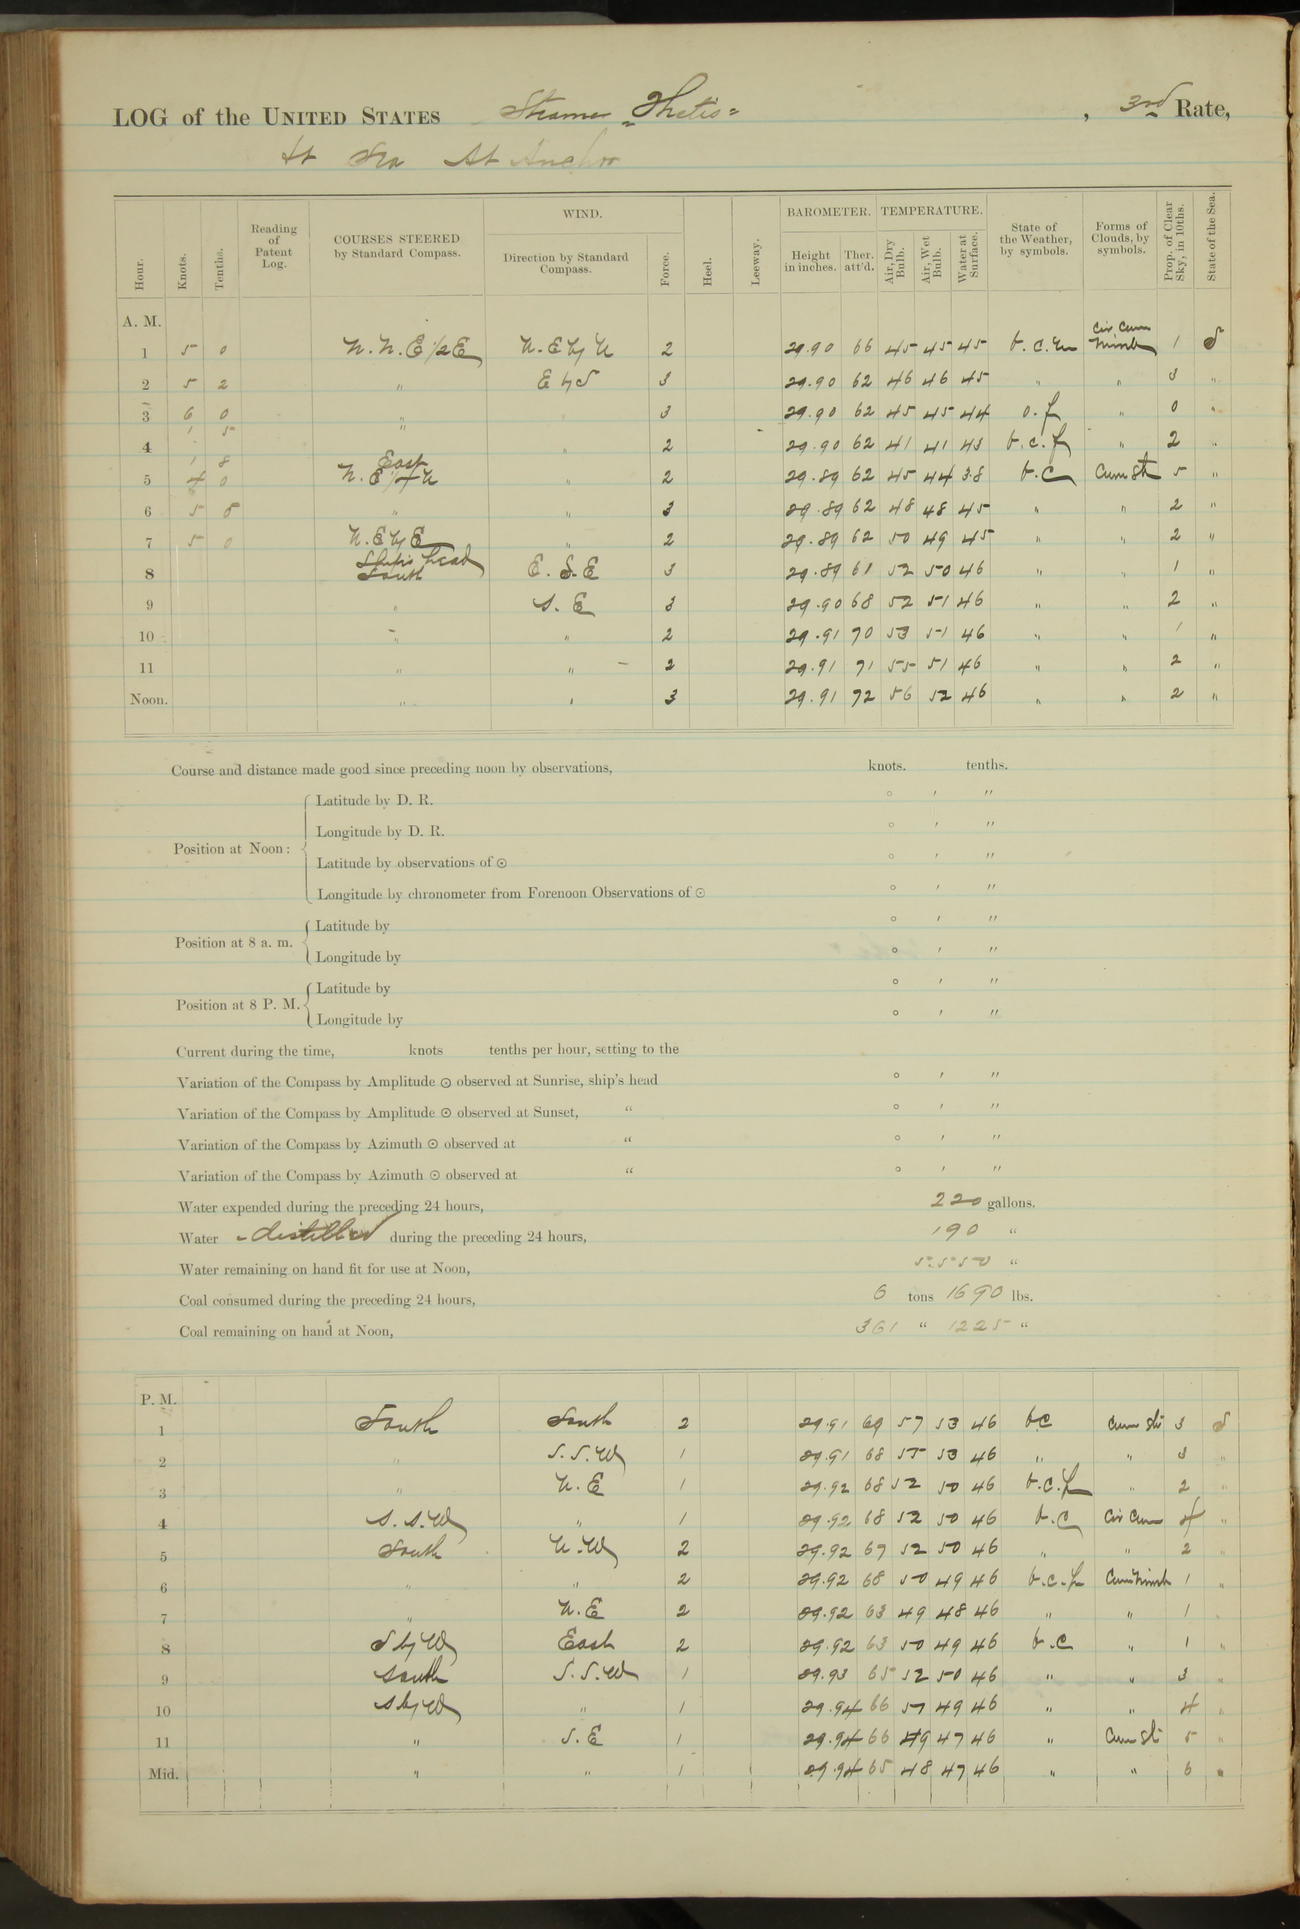 LOG of the UNITED STATES Steamer "Thetis" , 3rd Rate,
At Sea At Anchor
Hour. Knots. Tenths. Reading of Patent Log. COURSES STEERED by Standard Compass. WIND. Direction by Standard Compass. Force. Heel. Leeway. BAROMETER. Height in inches. Ther. att'd. TEMPERATURE. Air, Dry Bulb. Air, Wet Bulb. Water at Surface. State of the Weather, by symbols. Forms of Clouds, by symbols. Prop. of Clear Sky, in 10ths. State of the Sea.
A. M.
1 5 0 N.N.E 1/2 E N.E by N 2 29.90 66 45 45 45 b.c.m Cir. Cum Nimb 1 S
2 5 2 " E by S 3 29.90 62 46 46 45 " " 3 "
3 6 0 " 3 29.90 62 45 45 44 o.f " 0 "
4 1 5 " 2 29.90 62 41 41 43 b.c.f " 2 "
1 8 East
5 4 0 N.E 1/4 N " 2 29.89 62 45 44 38 b.c Cum St 5 "
6 5 5 " " 3 29.89 62 48 48 45 " " 2 "
7 5 0 N.E by E " 2 29.89 62 50 49 45 " " 2 "
8 Ship's head South E.S.E 3 29.89 61 52 50 46 " " 1 "
9 " S.E 3 29.90 68 52 51 46 " " 2 "
10 " " 2 29.91 70 53 51 46 " " 1 "
11 " " 2 29.91 71 55 51 46 " " 2 "
Noon. " " 3 29.91 72 56 52 46 " " 2 "
Course and distance made good since preceding noon by observations, knots. tenths.
Position at Noon: Latitude by D. R. ° ′ ″
Longitude by D. R. ° ′ ″
Latitude by observations of ☉ ° ′ ″
Longitude by chronometer from Forenoon Observations of ☉ ° ′ ″
Position at 8 a. m. Latitude by ° ′ ″
Longitude by ° ′ ″
Position at 8 P. M. Latitude by ° ′ ″
Longitude by ° ′ ″
Current during the time, knots tenths per hour, setting to the
Variation of the Compass by Amplitude ☉ observed at Sunrise, ship's head ° ′ ″
Variation of the Compass by Amplitude ☉ observed at Sunset, " ° ′ ″
Variation of the Compass by Azimuth ☉ observed at " ° ′ ″
Variation of the Compass by Azimuth ☉ observed at " ° ′ ″
Water expended during the preceding 24 hours, 220 gallons.
Water distilled during the preceding 24 hours, 190 "
Water remaining on hand fit for use at Noon, 5550 "
Coal consumed during the preceding 24 hours, 6 tons 1690 lbs.
Coal remaining on hand at Noon, 361 " 1225 "
P. M.
1 South South 2 29.91 69 57 53 46 bc Cum Str 3 S
2 " S.S.W 1 29.91 68 55 53 46 " " 3 "
3 " N.E 1 29.92 68 52 50 46 b.c.f " 2 "
4 S.S.W " 1 29.92 68 52 50 46 b.c Cir Cum 4 "
5 South N.W 2 29.92 67 52 50 46 " " 2 "
6 " " 2 29.92 68 50 49 46 b.c.f Cum Nimb 1 "
7 " N.E 2 29.92 63 49 48 46 " " 1 "
8 S by W East 2 29.92 63 50 49 46 b.c " 1 "
9 South S.S.W 1 29.93 65 52 50 46 " " 3 "
10 S by W " 1 29.94 66 51 49 46 " " 4 "
11 " S.E 1 29.94 66 49 47 46 " Cum St 5 "
Mid. " " 1 29.94 65 48 47 46 " " 6 "